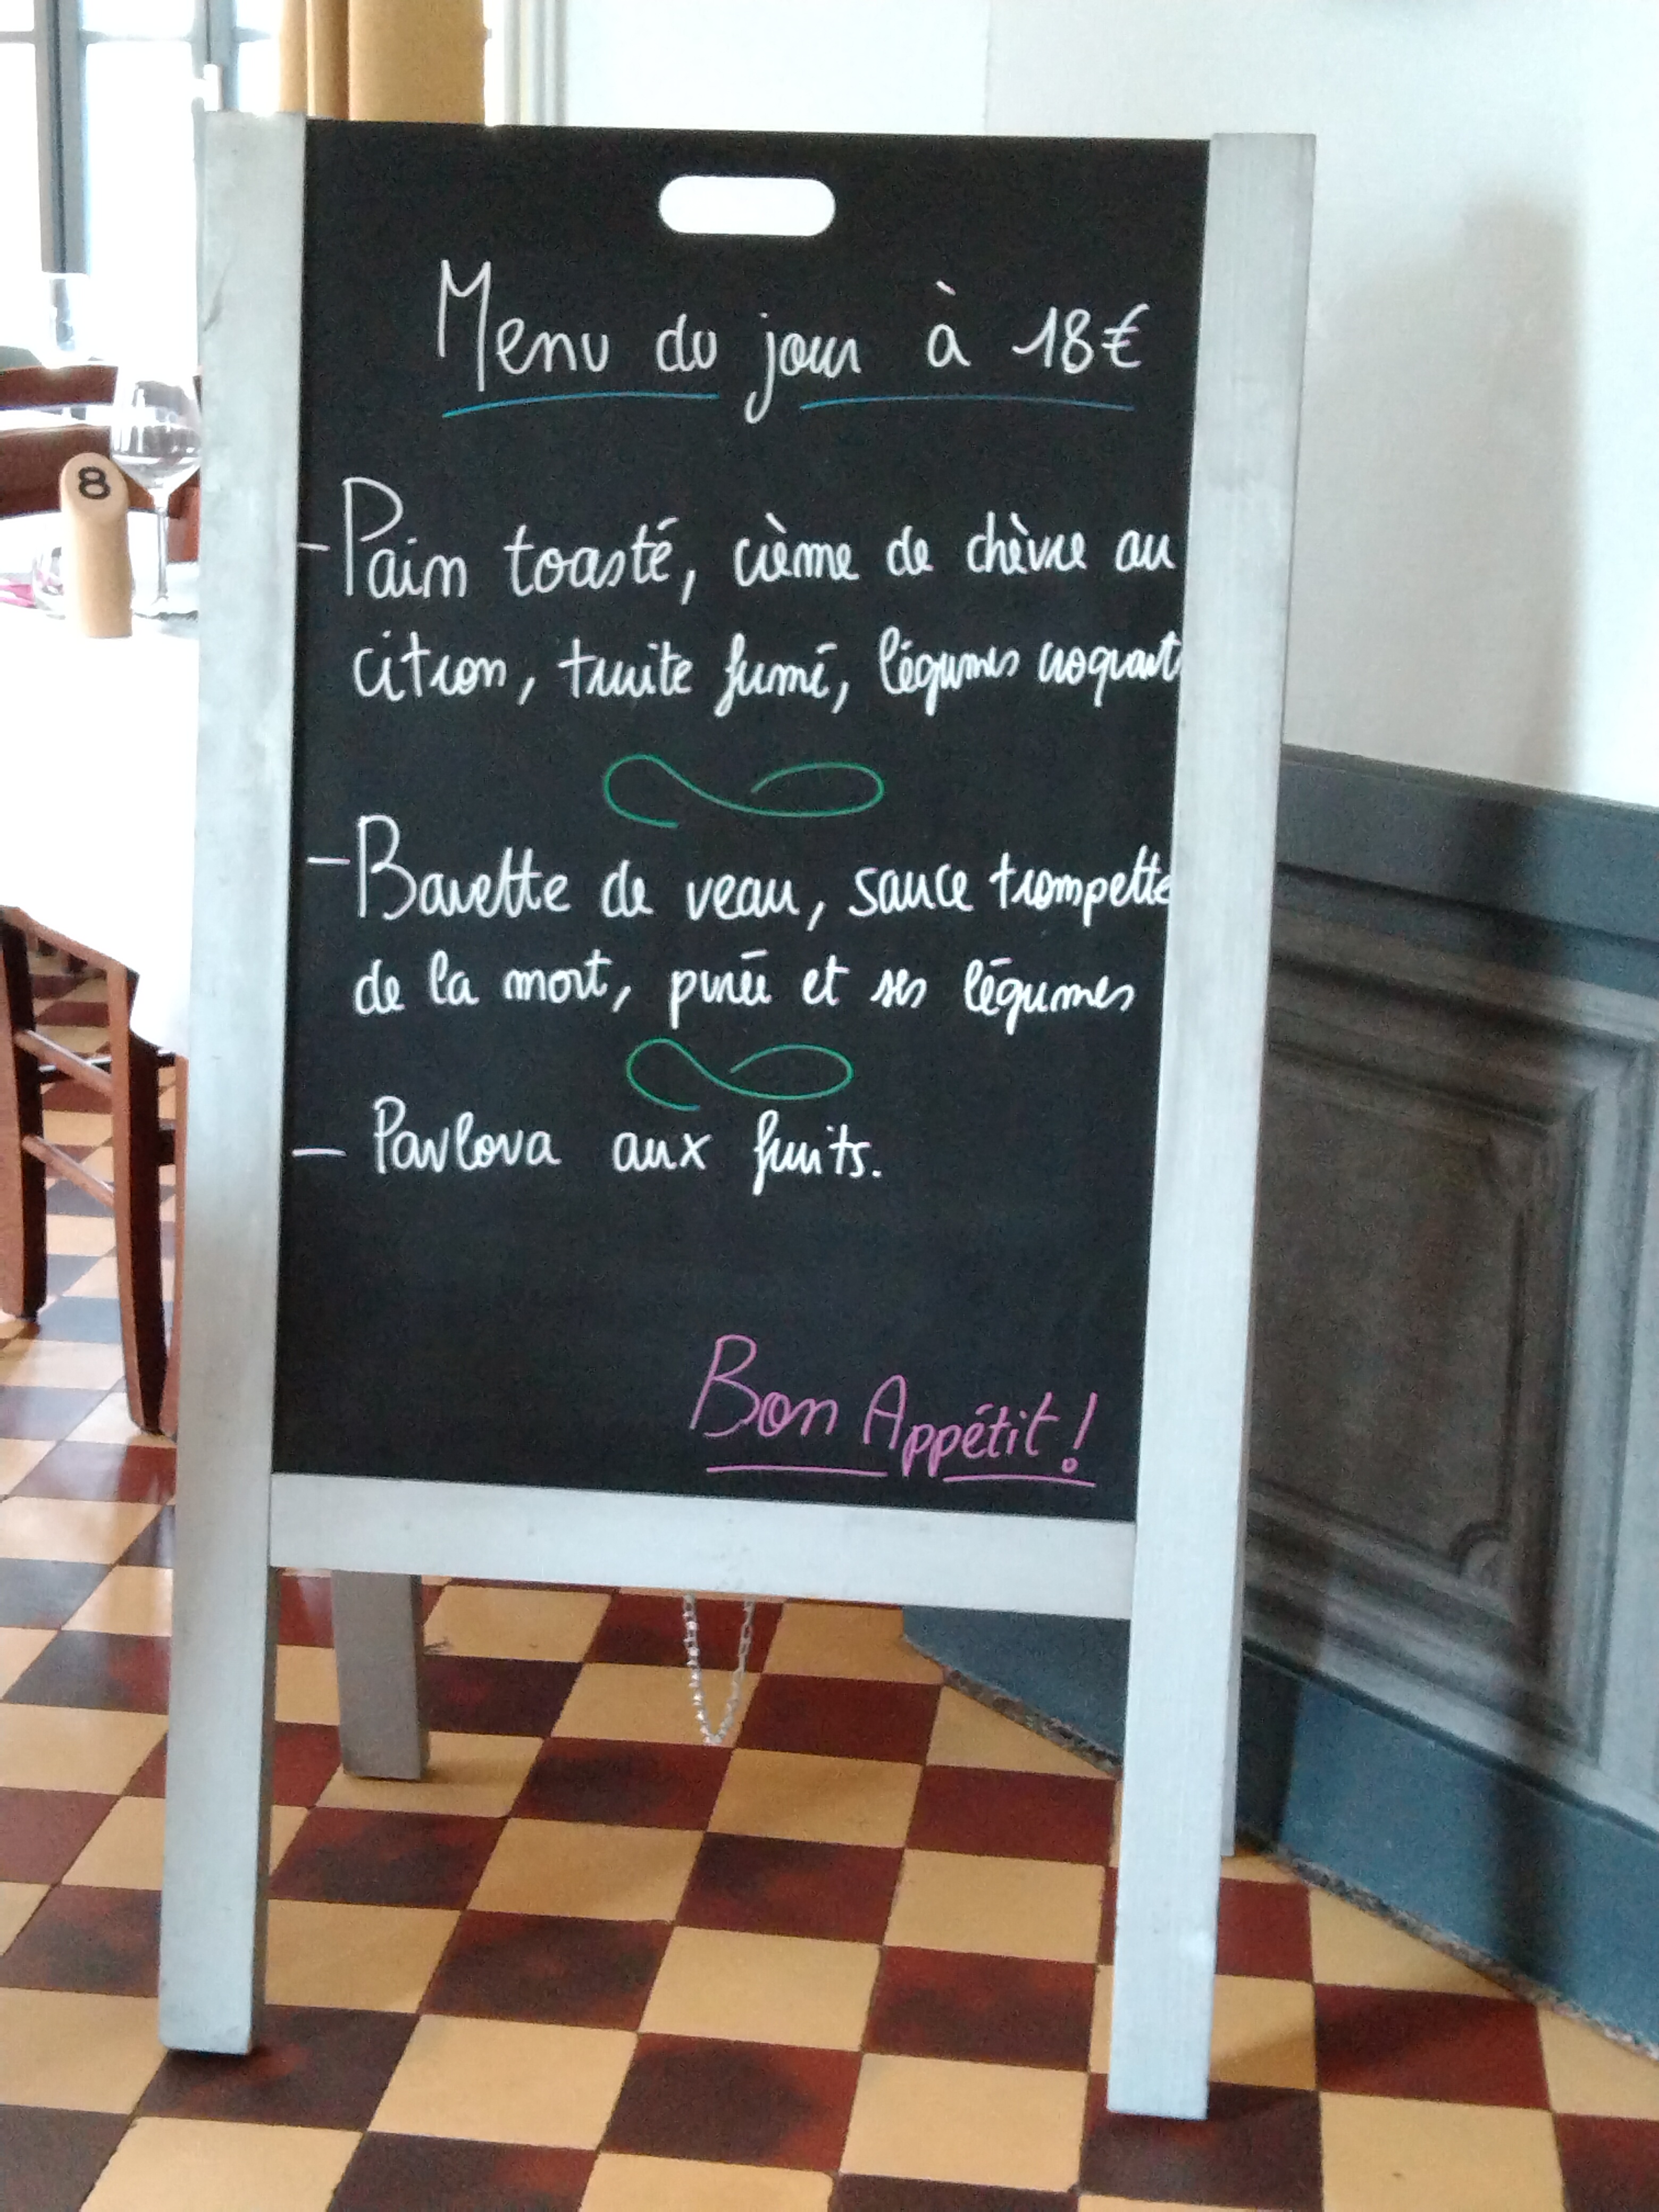 Menu du jour à 18€
- Pain toasté, crème de chèvre au
citron, truite fumé, légumes croquant
- Bavette de veau, sauce trompette
de la mort, purée et ses légumes
- Pavlova aux fruits.
Bon Appétit !
8